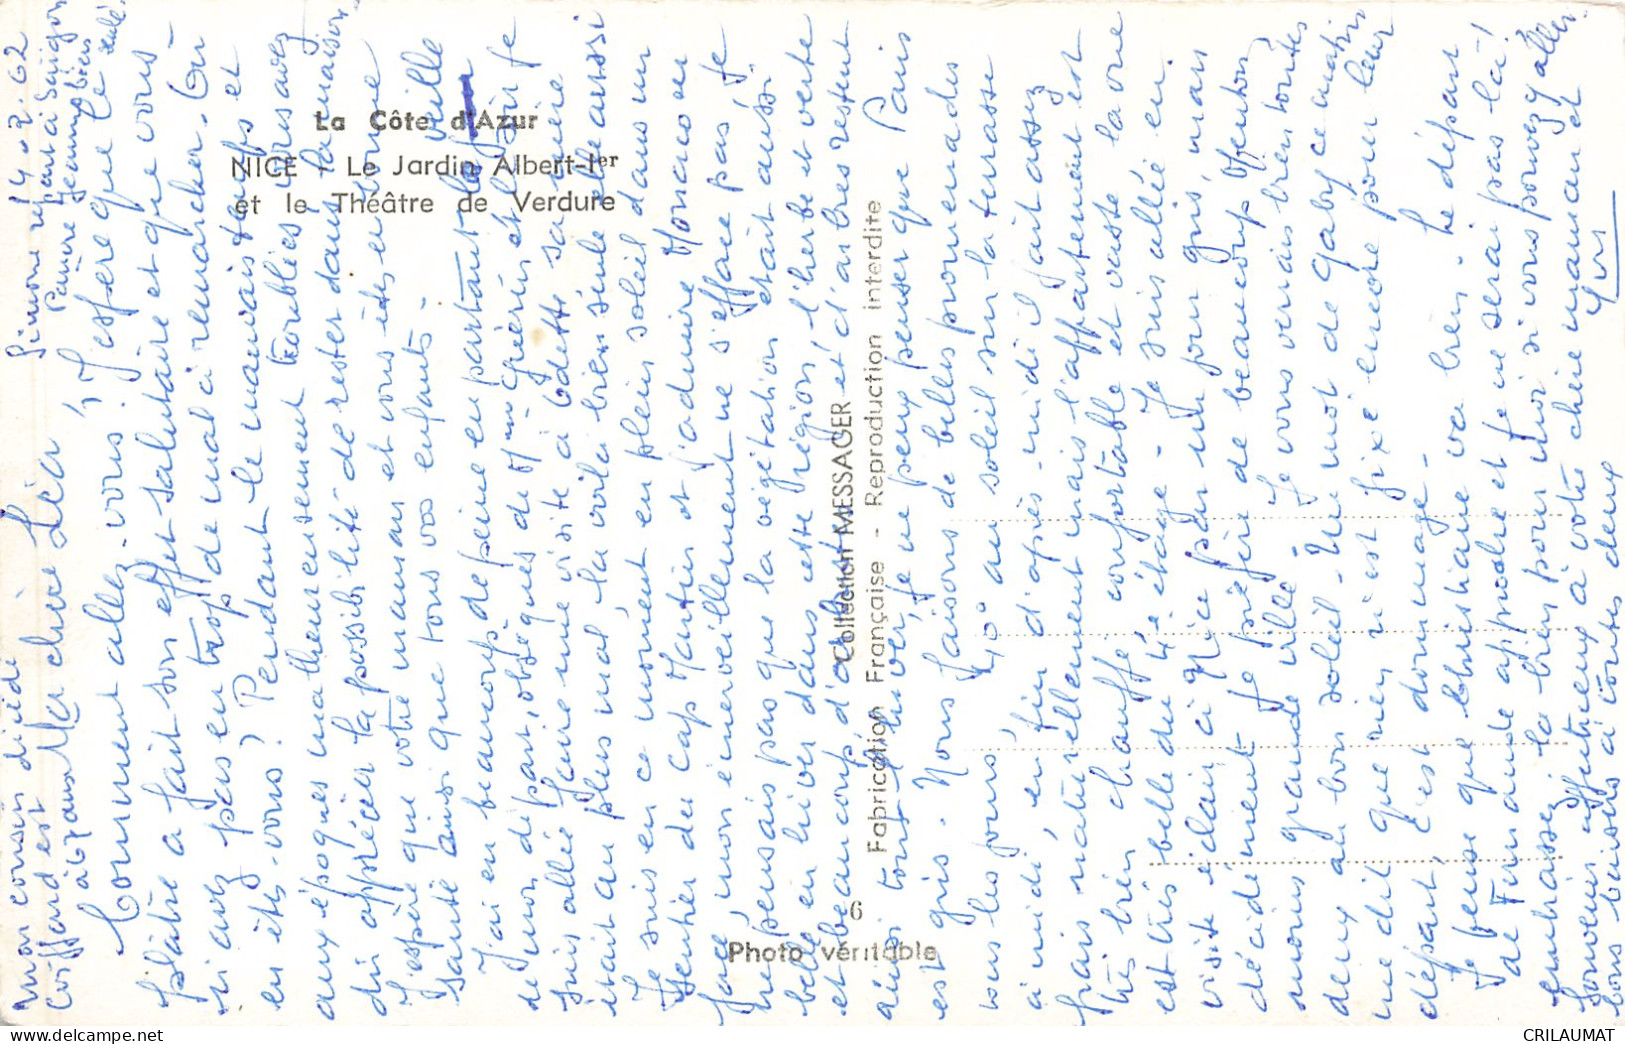 La Côte d'Azur
NICE - Le Jardin Albert-Ier
et le Théâtre de Verdure
Collection MESSAGER
Fabrication Française - Reproduction interdite
6
Photo véritable
14.2.62
mon cousin Didi
Coiffard est
à 67 ans
Simone repart à Saigon
Pauvre Jeannot bien
seulé.
Ma chère Léa,
Comment allez-vous ? J'espère que le
plâtre a fait son effet salutaire et que vous
n'avez pas eu trop de mal à remarcher. Où
en êtes-vous ? Pendant le mauvais temps et
aux époques malheureusement troublées vous avez
dû apprécier la possibilité de rester dans la maison.
J'espère que votre maman et vous êtes en bonne
santé ainsi que tous vos enfants -
J'ai eu beaucoup de peine en partant la veille
de mon départ, obsèques de Mme et le soir je
suis allée faire une visite à Odette sa mère
était au plus mal, la voilà bien seule elle aussi
Je suis en ce moment en plein soleil dans un
sentier du cap Martin et j'admire Monaco en
face, mon émerveillement ne s'efface pas, je
ne pensais pas que la végétation était aussi
belle en hiver dans cette région, l'herbe est verte
et beaucoup d' et d'arbres restent
ainsi tout l'hiver, je ne peux penser que Paris
est gris. Nous faisons de belles promenades
tous les jours, 40° au soleil sur la terrasse
à midi, en fin d'après-midi il fait assez
frais naturellement mais l'appartement est
très bien chauffé confortable et vaste la vue
est très belle du 4e étage - Je suis allée en
visite éclair à Nice par un jour gris, mais
décidément je préfère de beaucoup Menton
moins grande ville - Je vous verrais bien toutes
deux au bon soleil - Un mot de Gaby ce matin
me dit que rien n'est fixé encore pour leur
départ, c'est dommage -
Je pense que Christiane va bien - Le départ
de Fernande approche et je ne serai pas là !
embrassez la bien pour moi si vous pouvez y aller.
Souvenir affectueux à votre chère maman et
bons baisers à toutes deux
Yvs
CRILAUMAT